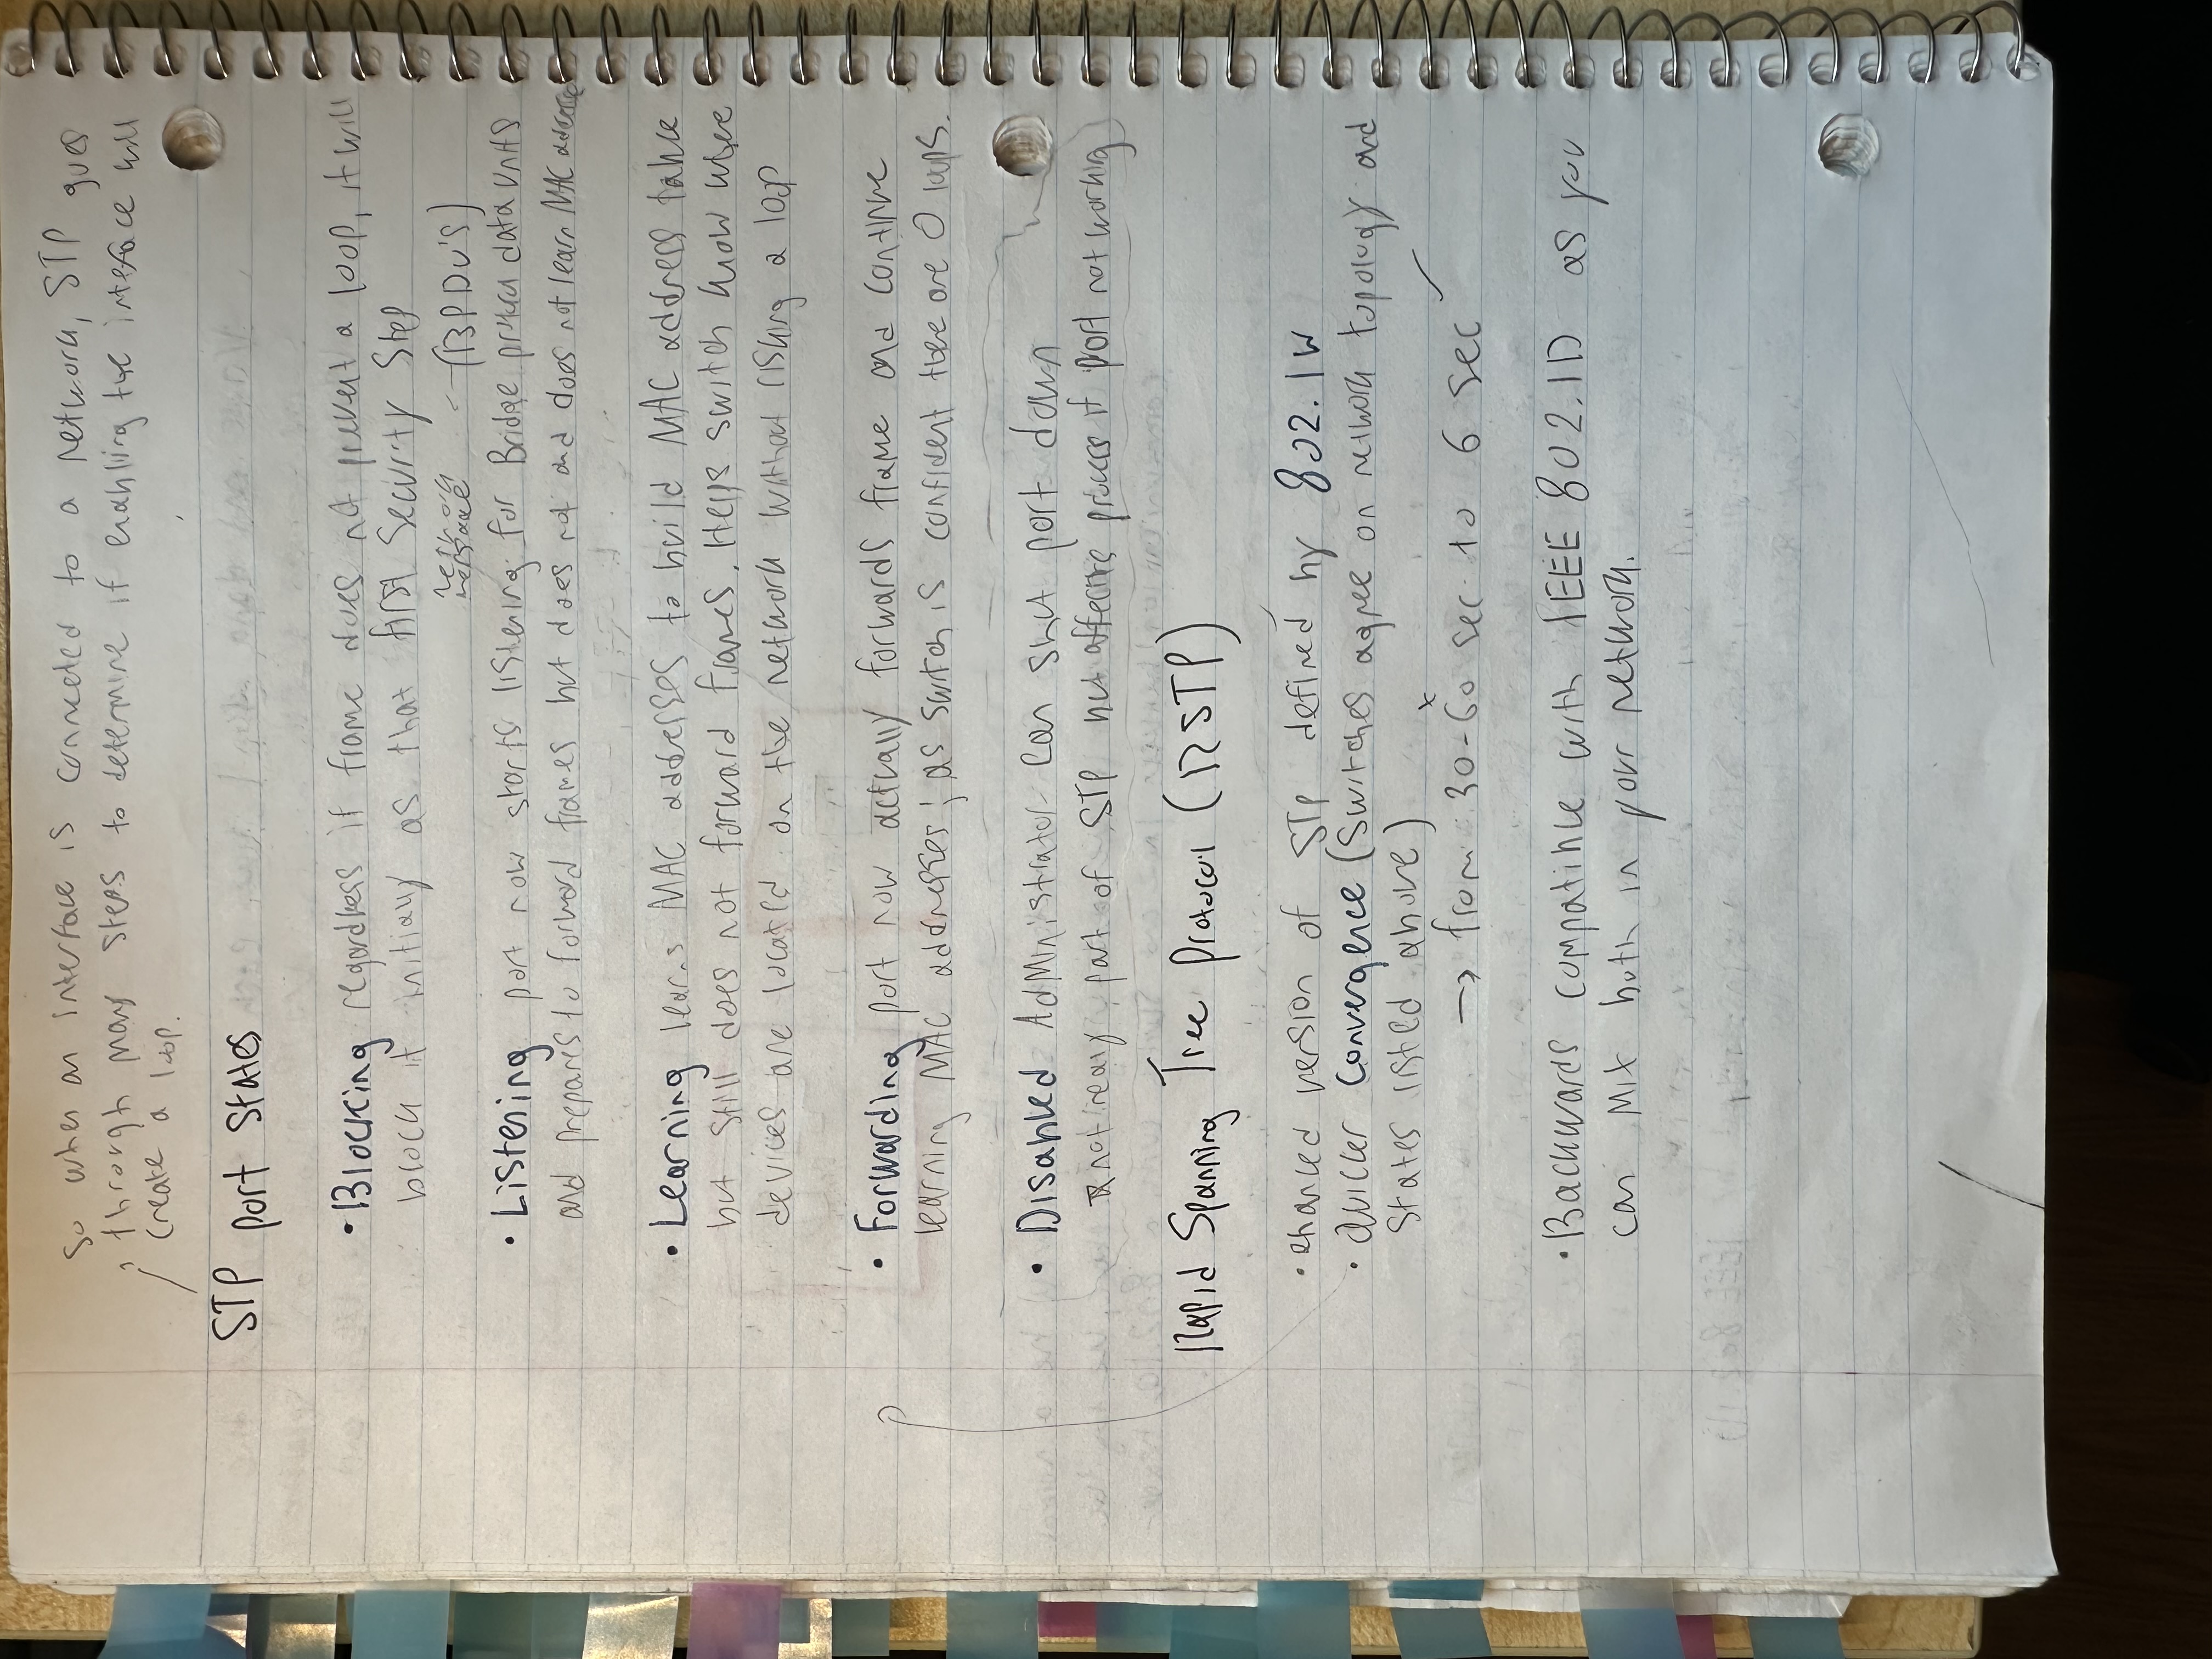 so when an interface is connected to a network, STP goes
through many steps to determine if enabling the interface will
create a loop.
STP port states
• Blocking regardless if frame does not prevent a loop, it will
block it initially as that first security step
network
message ← (BPDU's)
• Listening port now starts listening for Bridge data units
and prepares to forward frames but does not and does not learn MAC address
• Learning learns MAC addresses to build MAC address table
but still does not forward frames. Helps switch know where
devices are located on the network without risking a loop
• Forwarding port now actually forwards frame and continue
learning MAC addresses; as switch is confident there are 0 loops.
• Disabled Administrator can shut port down
* not really part of STP but affects process if port not working
Rapid Spanning Tree Protocol (RSTP)
• enhanced version of STP defined by 802.1w
• Quicker convergence (switches agree on network topology and
states listed above)
→ from 30-60 sec to 6 sec
• Backwards compatible with IEEE 802.1D as you
can mix both in your network.